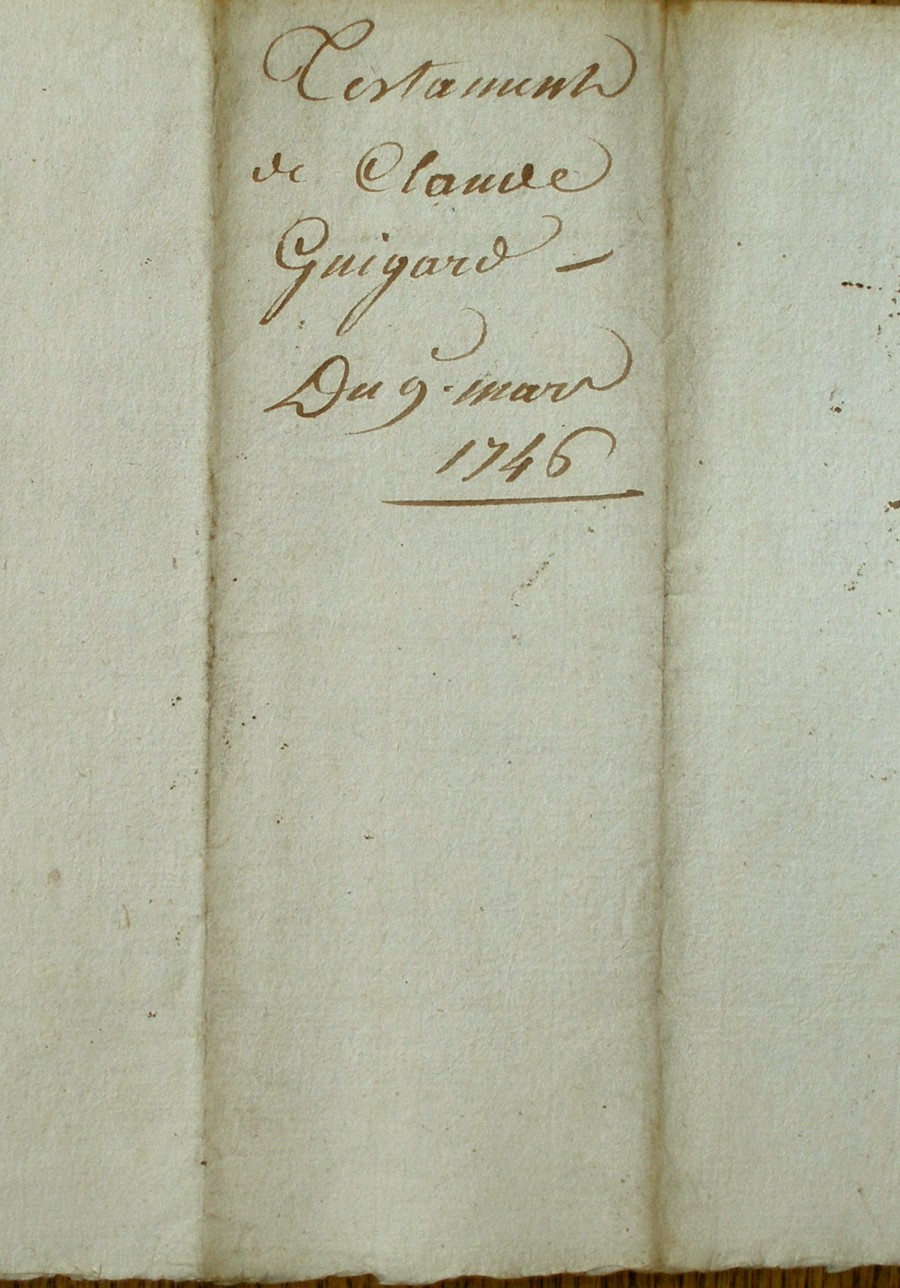 Testament
de Claude
Guigard –
Du 9. mars
1746